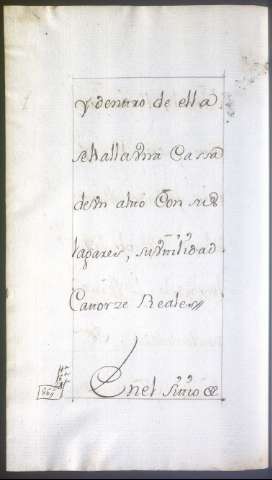 y dentro de ella
se halla vna Cassa
de vn alto Con sus
lapares, su vtilidad
Catorze Reales
En el sittio &